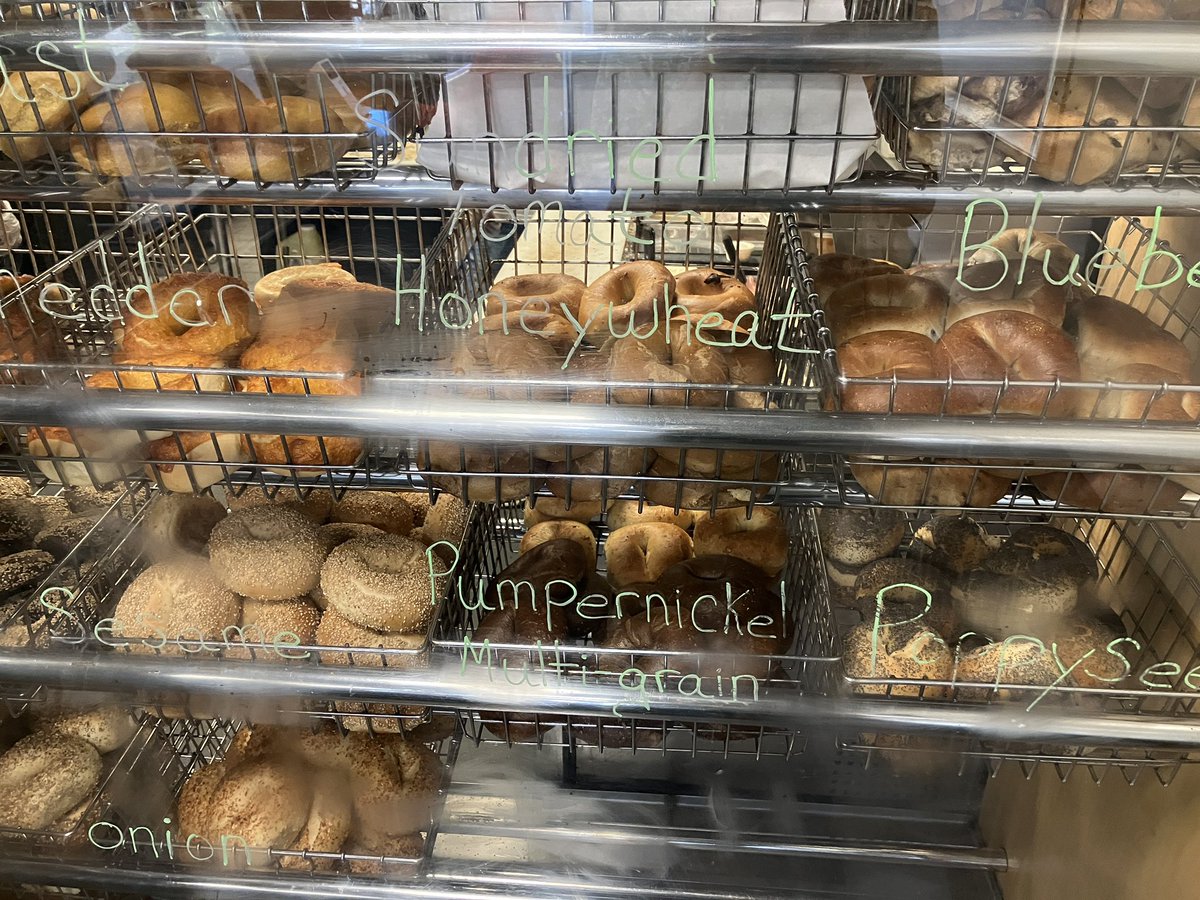 ast
Sundried
Tomato
heddar
Honeywheat
Bluebe
Sesame
Pumpernickel
Multi-grain
Poppysee
onion